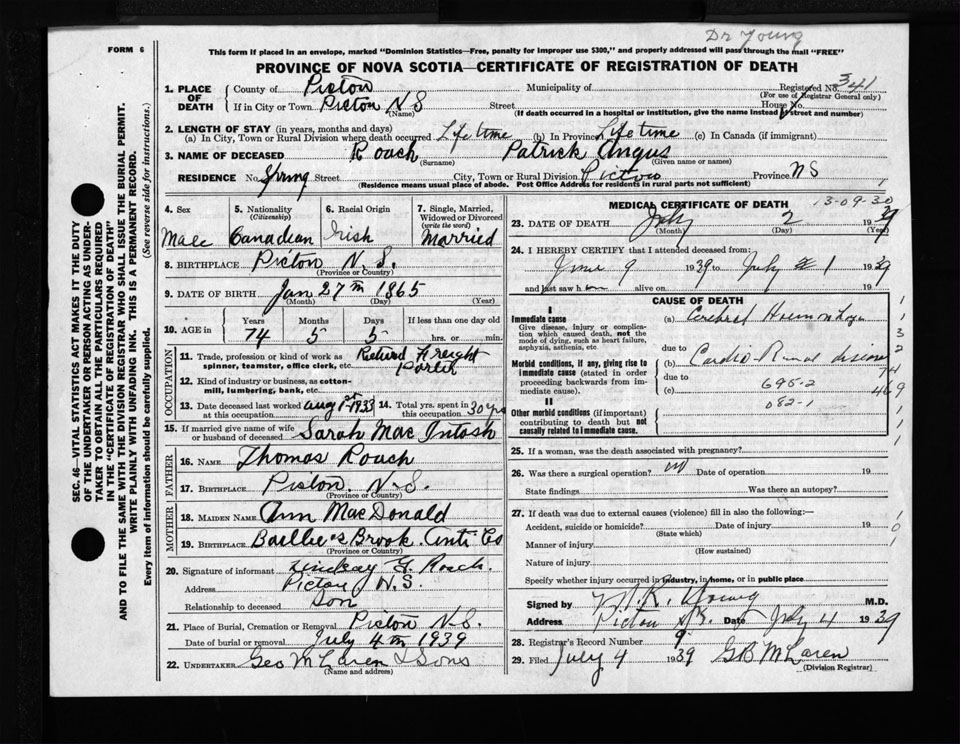 Dr Young
FORM 6
This form if placed in an envelope, marked "Dominion Statistics—Free, penalty for improper use $300," and properly addressed will pass through the mail "FREE"
PROVINCE OF NOVA SCOTIA—CERTIFICATE OF REGISTRATION OF DEATH
1. PLACE OF DEATH
County of Pictou Municipality of Registered No. 341
(For use of Registrar General only)
If in City or Town Pictou N S Street House No.
(Name) (If death occurred in a hospital or institution, give the name instead of street and number)
2. LENGTH OF STAY (in years, months and days)
(a) In City, Town or Rural Division where death occurred Life time (b) In Province Life time (c) In Canada (if immigrant)
3. NAME OF DECEASED Roach Patrick Angus
(Surname) (Given name or names)
RESIDENCE No. Spring Street City, Town or Rural Division Pictou Province NS
(Residence means usual place of abode. Post Office Address for residents in rural parts not sufficient)
4. Sex
Male
5. Nationality
(Citizenship)
Canadian
6. Racial Origin
Irish
7. Single, Married,
Widowed or Divorced
(write the word)
Married
8. BIRTHPLACE Pictou N. S.
(Province or Country)
9. DATE OF BIRTH Jan 27th 1865
(Month) (Day) (Year)
10. AGE in
Years Months Days If less than one day old
74 5 5 hrs. or min.
OCCUPATION
11. Trade, profession or kind of work as
spinner, teamster, office clerk, etc. Retired Freight
Porter
12. Kind of industry or business, as cotton-
mill, lumbering, bank, etc.
13. Date deceased last worked
at this occupation Aug 1st 1933
14. Total yrs. spent in
this occupation 30 yrs
15. If married give name of wife
or husband of deceased Sarah Mac Intosh
FATHER
16. NAME Thomas Roach
17. BIRTHPLACE Pictou. N. S.
(Province or Country)
MOTHER
18. MAIDEN NAME Ann MacDonald
19. BIRTHPLACE Baillie's Brook Anti Co
(Province or Country)
20. Signature of informant Lindsay G. Roach.
Address Pictou N. S.
Relationship to deceased Son
21. Place of Burial, Cremation or Removal Pictou N.S.
Date of burial or removal July 4th 1939
22. UNDERTAKER Geo McLaren & Sons
(Name and address)
MEDICAL CERTIFICATE OF DEATH
13-09-30
23. DATE OF DEATH July 2 1939
(Month) (Day) (Year)
24. I HEREBY CERTIFY that I attended deceased from:
June 9 1939 to July 1 1939
and last saw h alive on 19
CAUSE OF DEATH
I
Immediate cause
Give disease, injury or complica-
tion which caused death, not the
mode of dying, such as heart failure,
asphyxia, asthenia, etc.
(a) Cerebral
due to
Morbid conditions, if any, giving rise to
immediate cause (stated in order
proceeding backwards from im-
mediate cause).
(b) Cardio-Renal disease
due to
(c) 695-2
II
Other morbid conditions (if important)
contributing to death but not
causally related to immediate cause.
082-1
1
1
3
2
74
469
1
1
1
25. If a woman, was the death associated with pregnancy?
26. Was there a surgical operation? no Date of operation 19
State findings Was there an autopsy?
27. If death was due to external causes (violence) fill in also the following:—
Accident, suicide or homicide? Date of injury 19
(State which)
Manner of injury
(How sustained)
Nature of injury
Specify whether injury occurred in industry, in home, or in public place
1
0
1
Signed by Young M.D.
Address Pictou N.S. Date July 4 1939
28. Registrar's Record Number 9
29. Filed July 4 1939 G B McLaren
(Division Registrar)
SEC. 46—VITAL STATISTICS ACT MAKES IT THE DUTY
OF THE UNDERTAKER OR PERSON ACTING AS UNDER-
TAKER TO OBTAIN ALL THE PARTICULARS REQUIRED
IN THE "CERTIFICATE OF REGISTRATION OF DEATH"
AND TO FILE THE SAME WITH THE DIVISION REGISTRAR WHO SHALL ISSUE THE BURIAL PERMIT.
WRITE PLAINLY WITH UNFADING INK. THIS IS A PERMANENT RECORD.
Every item of information should be carefully supplied. (See reverse side for instructions.)